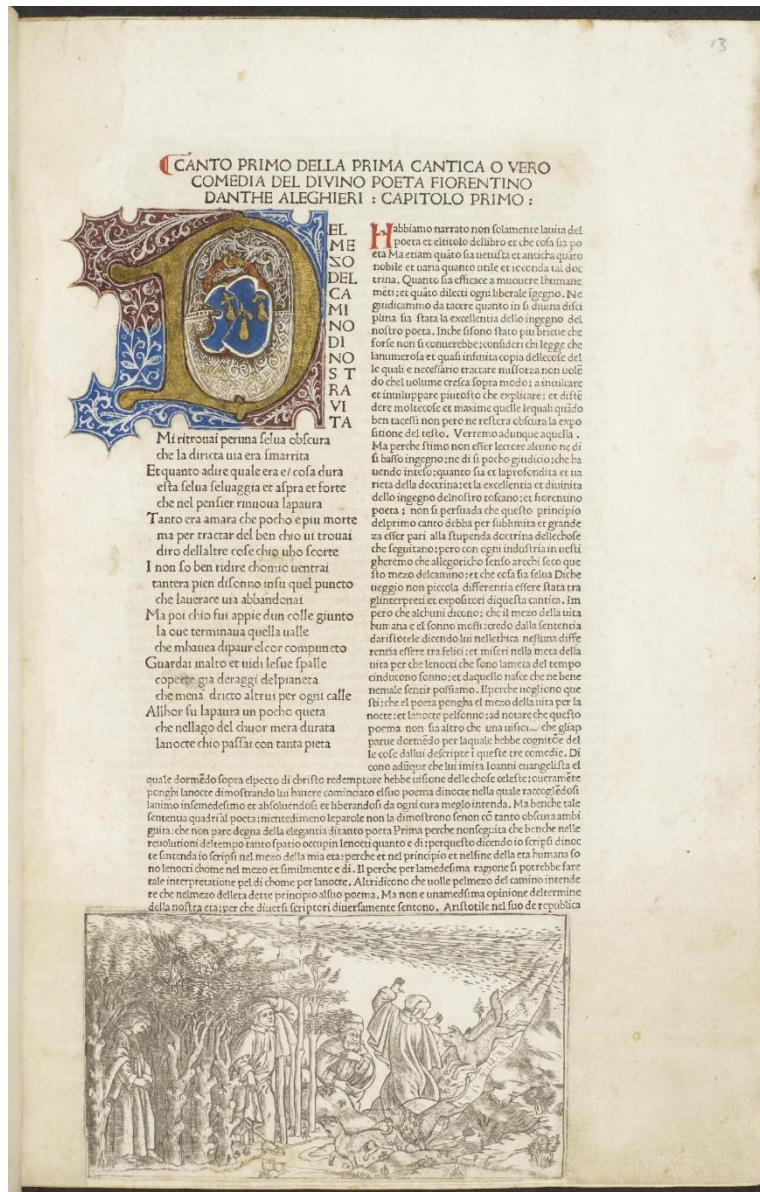 13
CANTO PRIMO DELLA PRIMA CANTICA O VERO
COMEDIA DEL DIVINO POETA FIORENTINO
DANTHE ALEGHIERI : CAPITOLO PRIMO :
DEL
ME
ZO
DEL
CA
MI
NO DI
NO
S T
RA
VI
TA
Mi ritrouai peruna ſelua obſcura
che la diricta uia era ſmarrita
Et quanto adire quale era e/ coſa dura
eſta ſelua ſeluaggia et aſpra et forte
che nel penſier rinuoua lapaura
Tanto era amara che pocho e piu morte
ma per tractar del ben chio ui trouai
diro dellaltre coſe chio uho ſcorte
I non ſo ben ridire chomio uentrai
tantera pien diſonno inſu quel puncto
che lauerace uia abbandonai
Ma poi chio fui appie dun colle giunto
la oue terminaua quella ualle
che mhauea dipaur elcor compuncto
Guardai inalto et uidi leſue ſpalle
coperte gia deraggi delpianeta
che mena dricto altrui per ogni calle
Allhor fu lapaura un pocho queta
che nellago del chuor mera durata
lanocte chio paſſai con tanta pieta
Habbiamo narrato non ſolamente lauita del
poeta et eltitolo dellibro et che coſa ſia po
eta Ma etiam quãto ſia uetuſta et anticha quãto
nobile et uaria quanto utile et ioconda tal doc
trina. Quanto ſia efficace a muouere lhumane
mẽti: et quãto dilecti ogni liberale ĩgegno. Ne
giudicammo da tacere quanto in ſi diuina diſci
plina ſia ſtata la excellentia dello ingegno del
noſtro poeta. Inche ſiſono ſtato piu brieue che
forſe non ſi conuerebbe: conſideri chi legge che
lanumeroſa et quaſi infinita copia dellecoſe del
le quali e neceſſario tractare miſforza non uolẽ
do chel uolume creſca ſopra modo: a inculcare
et inuiluppare piutoſto che explicare: et diſtẽ
dere moltecoſe et maxime quelle lequali quãdo
ben taceſſi non pero ne reſtera obſcura la expo
ſitione del teſto. Verremo adunque aquella.
Ma perche ſtimo non eſſer lectore alcuno ne di
ſi baſſo ingegno: ne di ſi pocho giudicio: che ha
uendo inteſo: quanto ſia et laprofondita et ua
rieta della doctrina: et la excellentia et diuinita
dello ingegno delnoſtro toſcano: et fiorentino
poeta: non ſi perſuada che queſto principio
delprimo canto debba per ſublimita et grande
za eſſer pari alla ſtupenda doctrina dellechoſe
che ſeguitano: pero con ogni induſtria in ueſti
gheremo che allegoricho ſenſo arechi ſeco que
ſto mezo delcamino: et che coſa ſia ſelua Diche
ueggio non piccola differentia eſſere ſtata tra
glinterpreti et expoſitori diqueſta cantica. Im
pero che alchuni dicono: che il mezo della uita
humana e el ſonno moſſi: credo dalla ſententia
dariſtotele dicendo lui nellethica neſſuna diffe
rentia eſſere tra felici: et miſeri nella meta della
uita per che lenocti che ſono lameta del tempo
cinducono ſonno: et daquello naſce che ne bene
nemale ſentir poſſiamo. Ilperche uogliono que
ſti: che el poeta pongha el mezo della uita per la
nocte: et lanocte pelſonno: ad notare che queſto
poema non ſia altro che una uiſio che gliap
parue dormẽdo per laquale hebbe cognitõe del
le coſe dallui deſcripte ĩ queſte tre comedie. Di
cono adũque che lui imita Ioanni euangeliſta el
quale dormẽdo ſopra elpecto di chriſto redemptore hebbe uiſione delle choſe celeſte: oueramẽte
ponghi lanocte dimoſtrando lui hauere cominciato elſuo poema dinocte nella quale raccoglẽdoſi
lanimo inſemedeſimo et abſoluendoſi et liberandoſi da ogni cura meglo intenda. Ma benche tale
ſententia quadri al poeta: nientedimeno leparole non la dimoſtrono ſenon cõ tanto obſcura ambi
guita: che non pare degna della elegantia ditanto poeta Prima perche nonſeguita che benche nelle
reuolutioni deltempo tanto ſpatio occupin lenocti quanto e di: perqueſto dicendo io ſcripſi dinoc
te ſintenda io ſcripſi nel mezo della mia eta: perche et nel principio et nelfine della eta humana ſo
no lenocti chome nel mezo et ſimilmente e di. Il perche per lamedeſima ragione ſi potrebbe fare
tale interpretatione pel di chome per lanocte. Altri dicono che uolle pelmezo del camino intende
re che nelmezo delleta dette principio alſuo poema. Ma non e unamedeſima opinione deltermine
della noſtra eta: per che diuerſi ſcriptori diuerſamente ſentono. Ariſtotile nel ſuo de republica